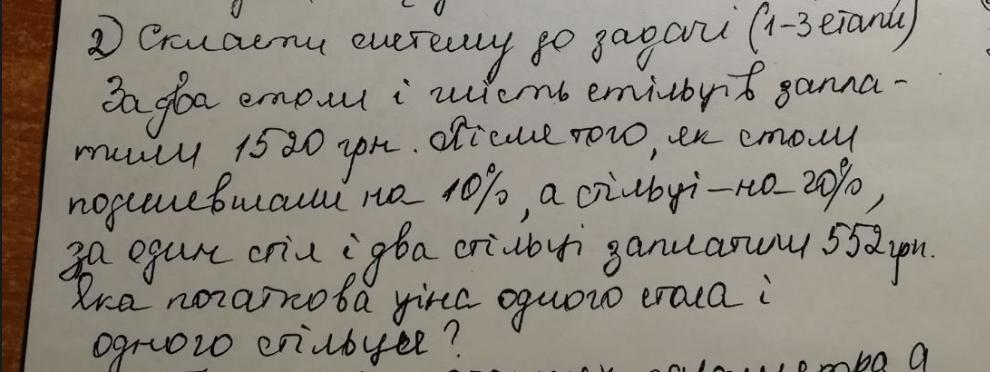 2) Скласти систему до задачі (1-3 етапи)
За два столи і шість стільців запла-
тили 1520 грн. Після того, як столи
подешевшали на 10%, а стільці – на 20%,
за один стіл і два стільці заплатили 552 грн.
Яка початкова ціна одного стола і
одного стільця?